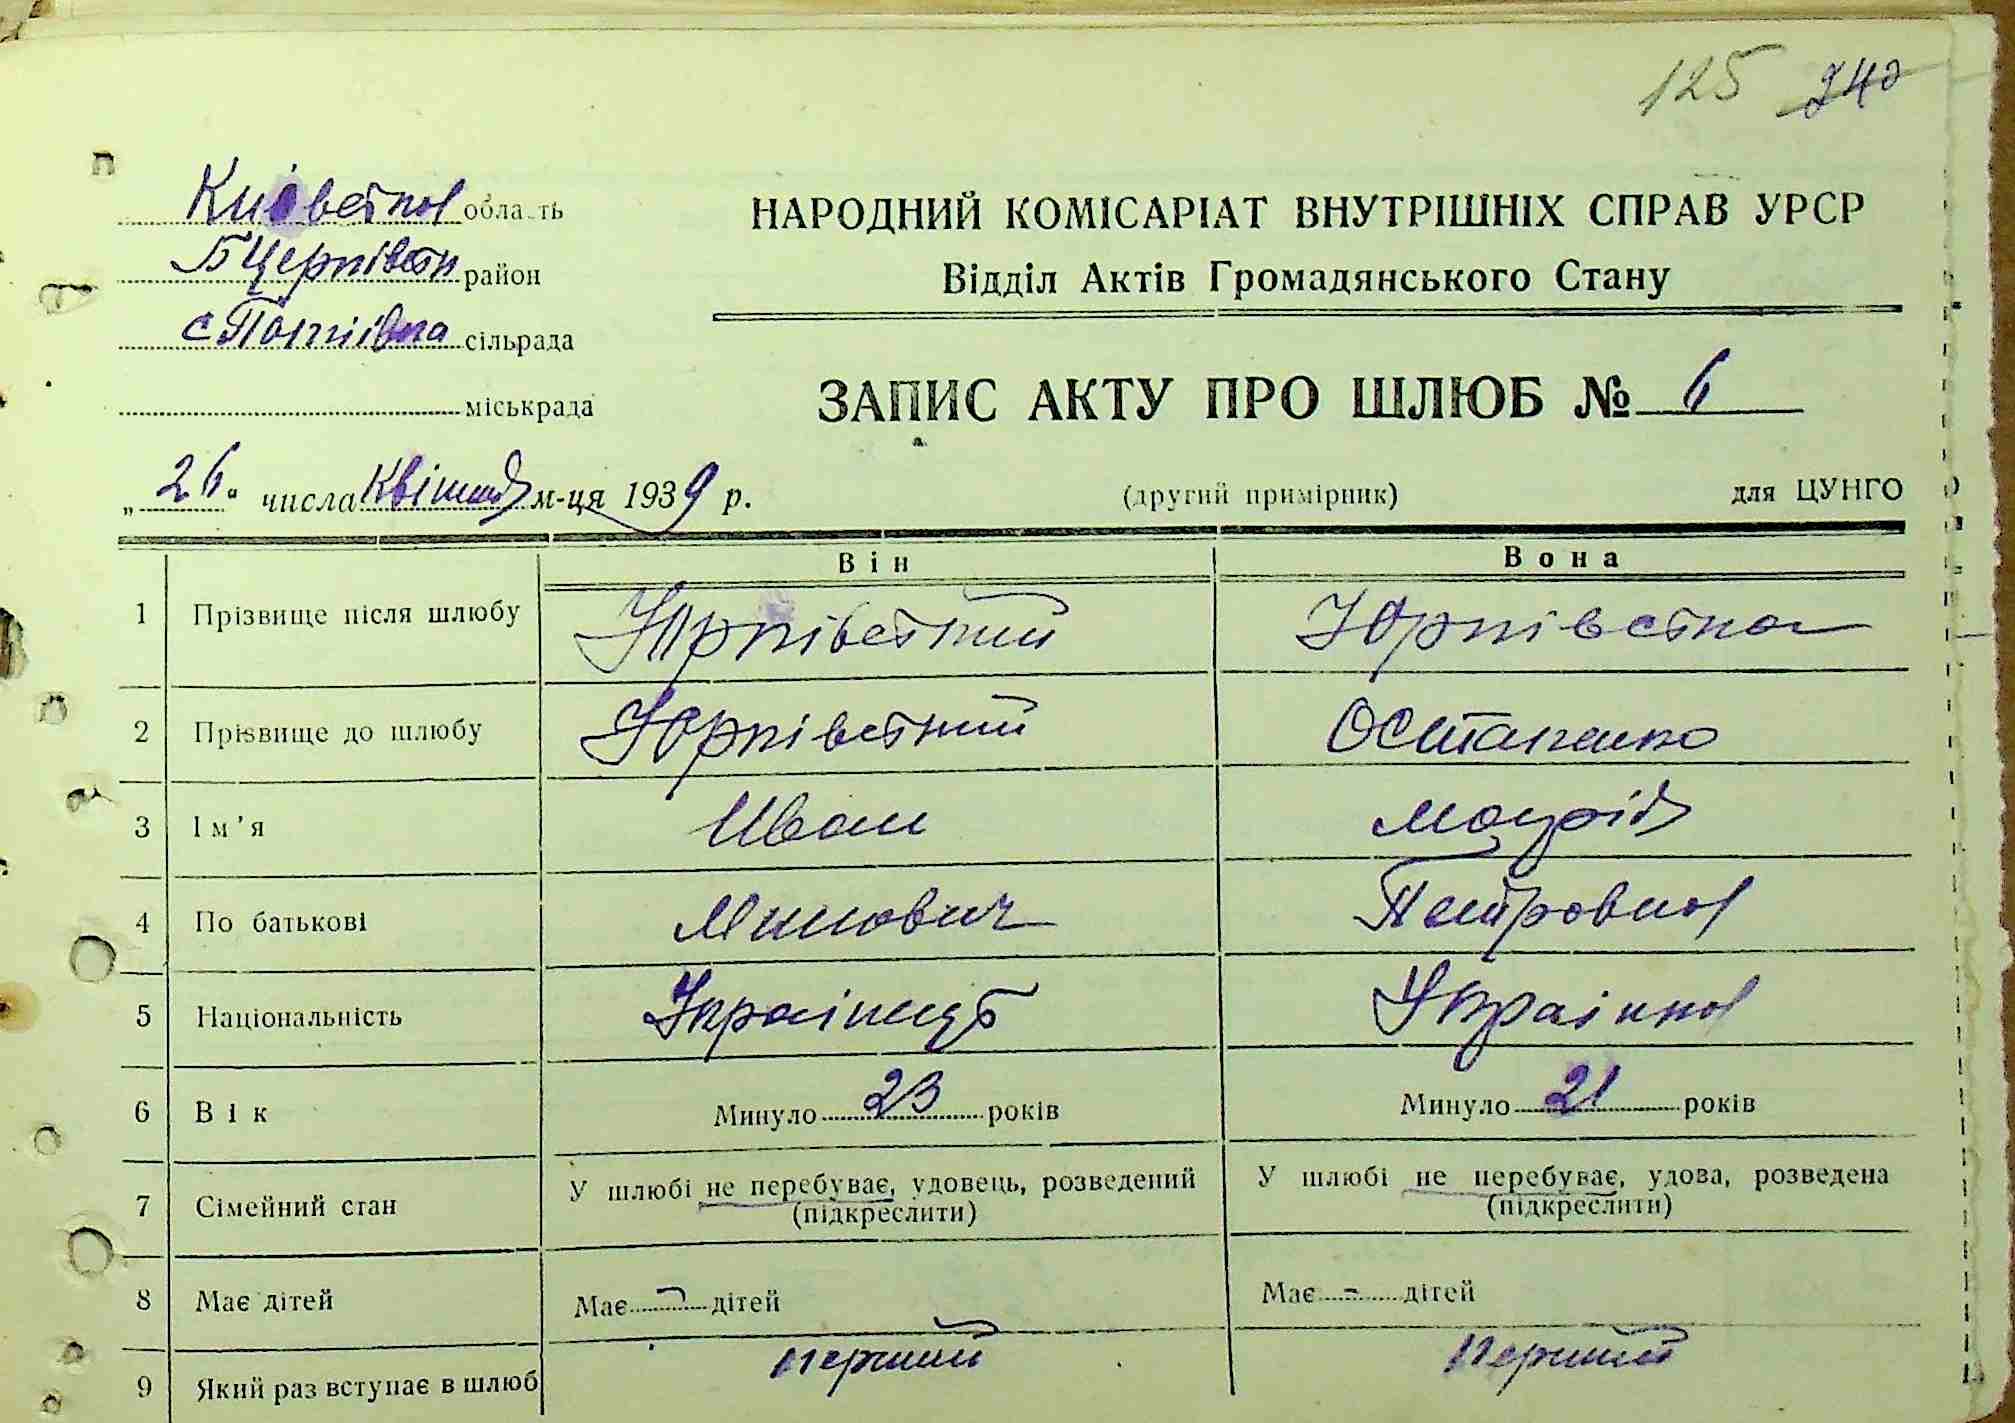 125 240
Київської область
БЦерківськ район
НАРОДНИЙ КОМІСАРІАТ ВНУТРІШНІХ СПРАВ УРСР
Відділ Актів Громадянського Стану
с Потіївка сільрада
міськрада
ЗАПИС АКТУ ПРО ШЛЮБ № 6
„26“ числа квітня м-ця 1939 р. (другий примірник) для ЦУНГО
Він Вона
1 Прізвище після шлюбу Юрківський Юрківська
2 Прізвище до шлюбу Юрківський Остапенко
3 Ім'я Иван Марія
4 По батькові Минович Петровна
5 Національність Українець Украінка
6 Вік Минуло 23 років Минуло 21 років
7 Сімейний стан У шлюбі не перебуває, удовець, розведений У шлюбі не перебуває, удова, розведена
(підкреслити) (підкреслити)
8 Має дітей Має - дітей Має - дітей
9 Який раз вступає в шлюб перший перший